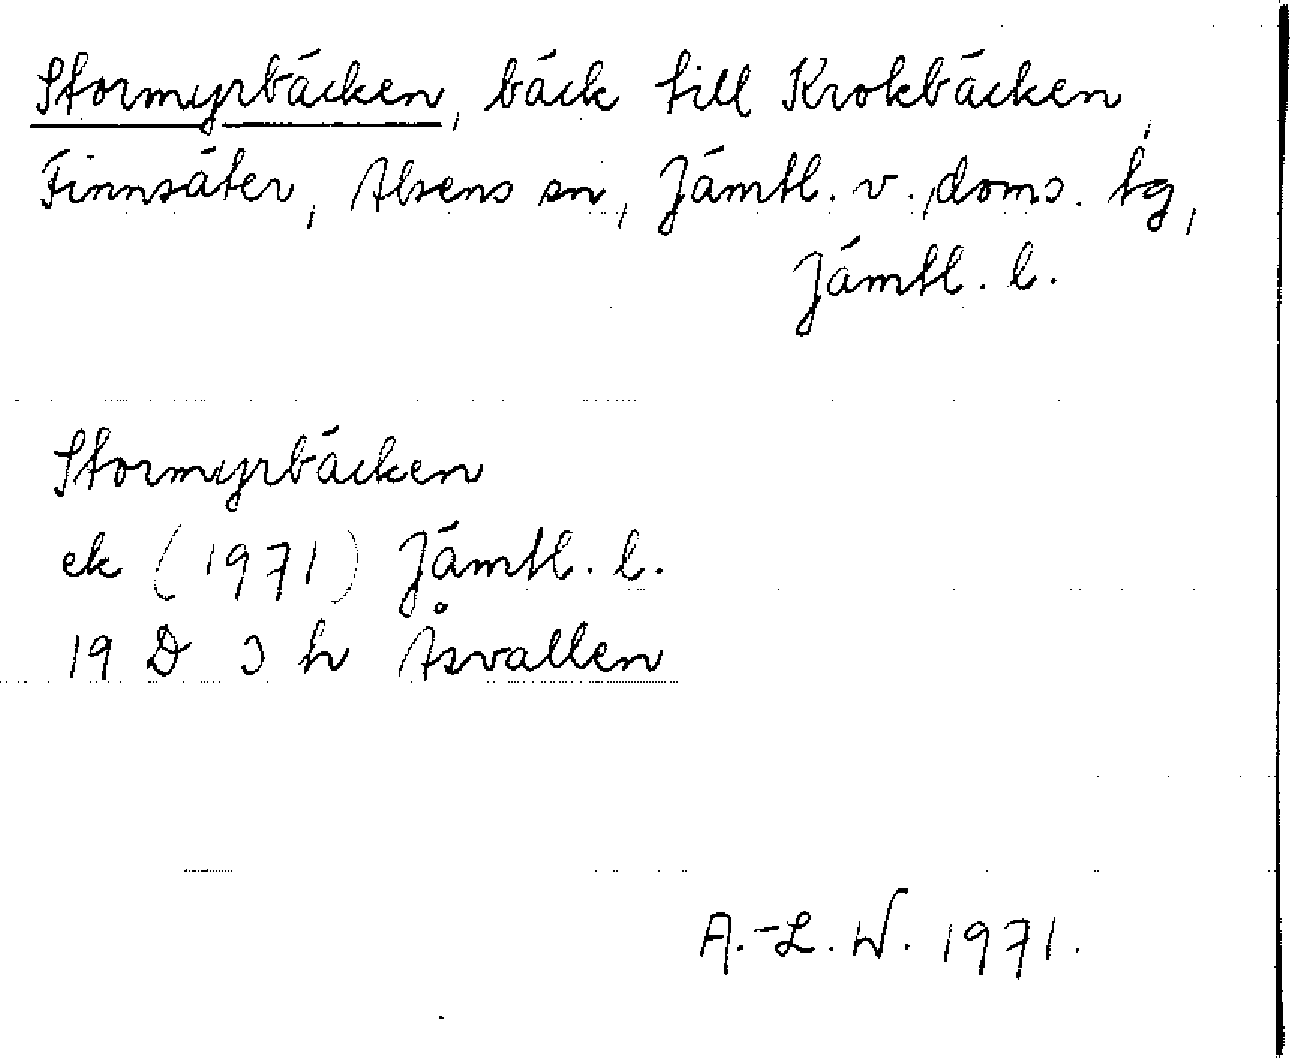 Stormyrbäcken, bäck till Krokbäcken,
Finnsäter, Alsens sn, Jämtl. v. doms. tg,
Jämtl. l.
Stormyrbäcken
ek (1971) Jämtl. l.
19 D 3 h Åsvallen
A.-L. W. 1971.